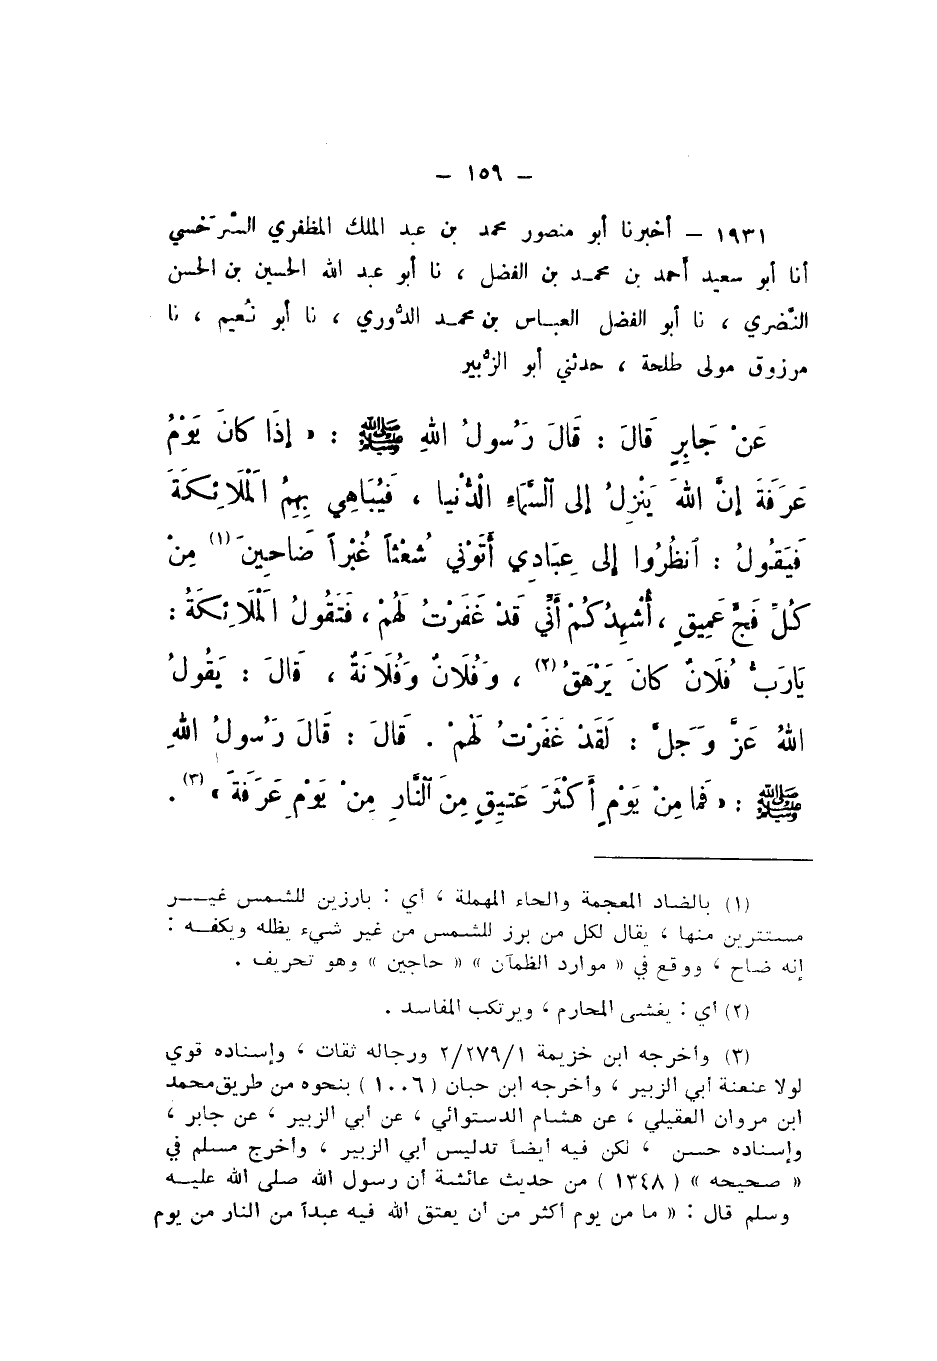 – ١٥٩ –
١٩٣١ – أخبرنا أبو منصور محمد بن عبد الملك المظفري السَّرَخْسي
أنا أبو سعيد أحمد بن محمد بن الفضل ، نا أبو عبد الله الحسين بن الحسن
النَّضري ، نا أبو الفضل العباس بن محمد الدُّوري ، نا أبو نُعيم ، نا
مرزوق مولى طلحة ، حدثني أبو الزُّبير
عَنْ جَابِرٍ قَالَ : قَالَ رَسُولُ اللهِ ﷺ : « إِذَا كَانَ يَوْمُ
عَرَفَةَ إِنَّ اللهَ يَنْزِلُ إِلَى ٱلسَّمَاءِ الْدُّنْيا ، فَيُبَاهِي بِهِمُ الْمَلَائِكَةَ
فَيَقُولُ : ٱنظُرُوا إِلى عِبَادِي أَتَوْني شُعْثاً غُبْراً ضَاحِينَ (١) مِنْ
كُلِّ فَجٍّ عَمِيقٍ ، أُشْهِدُكُمْ أَنِّي قَدْ غَفَرْتُ لَهُمْ ، فَتَقُولُ الْمَلَائِكَةُ :
يَارَبُّ فُلَانٌ كَانَ يَرْهَقُ (٢) ، وَفُلَانٌ وَفُلَانَةٌ ، قَالَ : يَقُولُ
اللهُ عَزَّ وَجَلَّ : لَقَدْ غَفَرْتُ لَهُمْ . قَالَ : قَالَ رَسُولُ اللهِ
ﷺ : « فَما مِنْ يَوْمٍ أَكْثَرَ عَتِيقٍ مِنَ ٱلنَّارِ مِنْ يَوْمِ عَرَفَةَ » (٣) .
(١) بالضاد المعجمة والحاء المهملة ، أي : بارزين للشمس غير
مستترين منها ، يقال لكل من برز للشمس من غير شيء يظله ويكفه :
إنه ضاح ، ووقع في « موارد الظمآن » « حاجين » وهو تحريف .
(٢) أي : يغشى المحارم ، ويرتكب المفاسد .
(٣) وأخرجه ابن خزيمة ٢/٢٧٩/١ ورجاله ثقات ، وإسناده قوي
لولا عنعنة أبي الزبير ، وأخرجه ابن حبان ( ١٠٠٦ ) بنحوه من طريق محمد
ابن مروان العقيلي ، عن هشام الدستوائي ، عن أبي الزبير ، عن جابر ،
وإسناده حسن ، لكن فيه أيضاً تدليس أبي الزبير ، وأخرج مسلم في
« صحيحه » ( ١٣٤٨ ) من حديث عائشة أن رسول الله صلى الله عليه
وسلم قال : « ما من يوم أكثر من أن يعتق الله فيه عبداً من النار من يوم